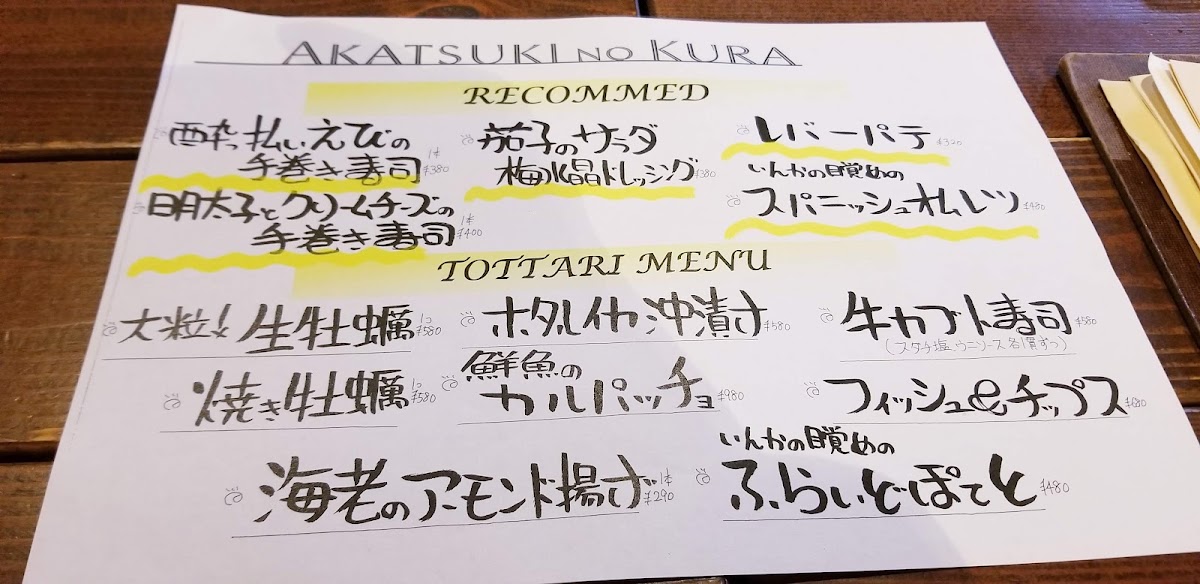 AKATSUKI NO KURA
RECOMMED
酔っ払いえびの
手巻き寿司 1本 ¥380
明太子とクリームチーズの
手巻き寿司 1本 ¥400
茄子のサラダ
梅水晶ドレッシング ¥380
レバーパテ ¥320
いんかの目覚めの
スパニッシュオムレツ ¥480
TOTTARI MENU
大粒!生牡蠣 1コ ¥580
ホタルイカ沖漬け ¥580
牛カブト寿司 ¥580
(スダチ塩、ウニソース各1貫ずつ)
焼き牡蠣 1コ ¥580
鮮魚の
カルパッチョ ¥980
フィッシュ&チップス
海老のアーモンド揚げ 1本 ¥290
いんかの目覚めの
ふらいどぽてと ¥480